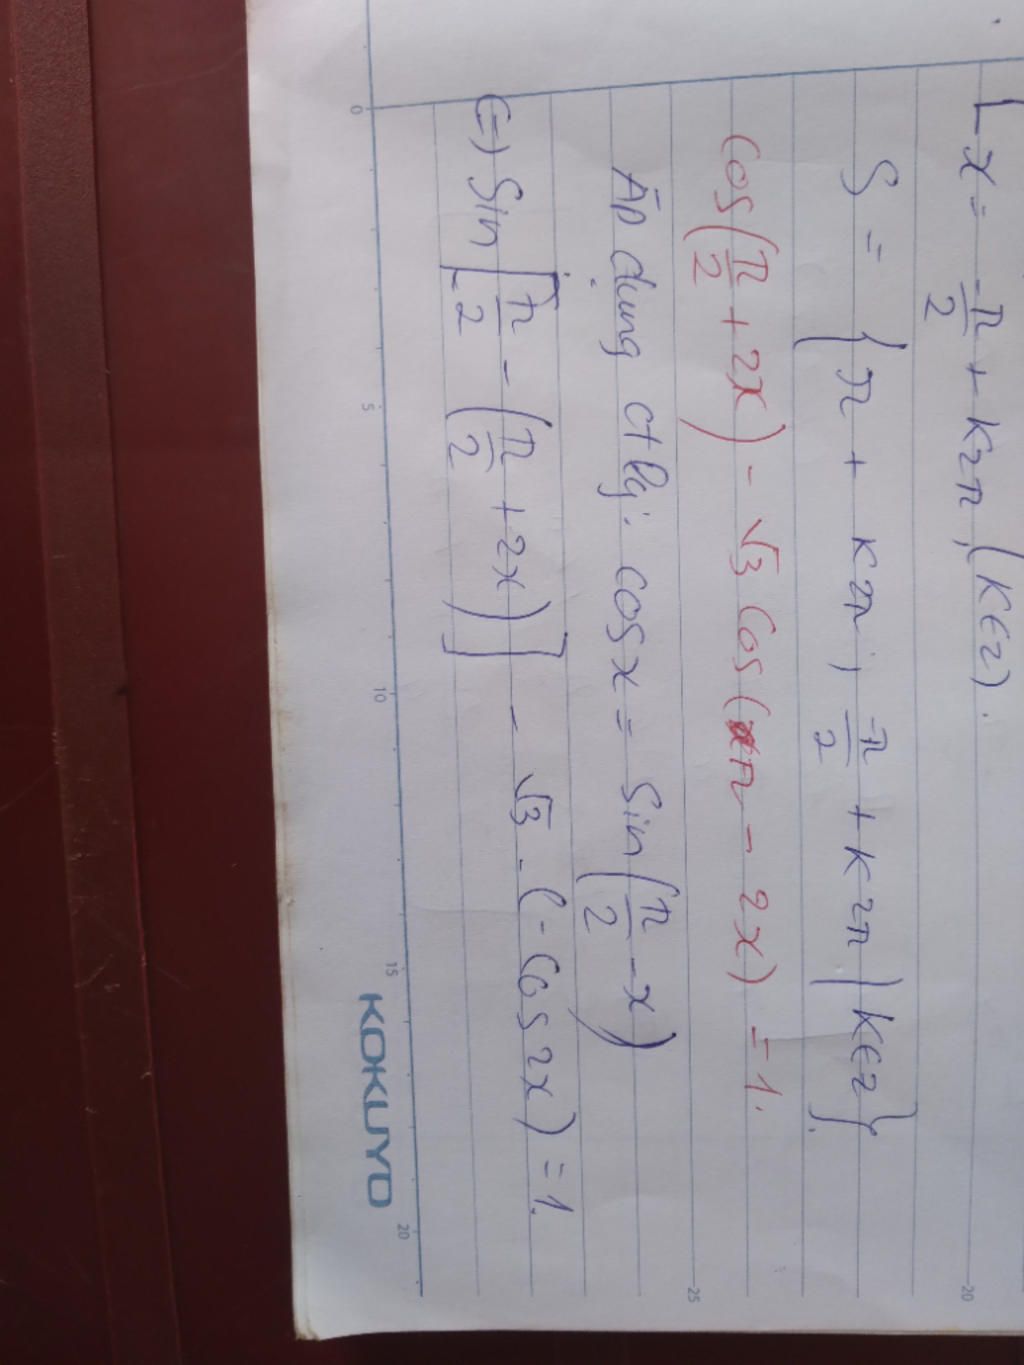 x = -π/2 + K2π, (K∈Z).
S = {π + K2π; -π/2 + K2π | K∈Z}.
Cos(π/2 + 2x) - √3 Cos(π - 2x) = 1.
Áp dụng ct lg: cosx = Sin(π/2 - x)
(=) Sin[π/2 - (π/2 + 2x)] - √3 . (-Cos2x) = 1.
0 5 10 15 20
KOKUYO
20
25